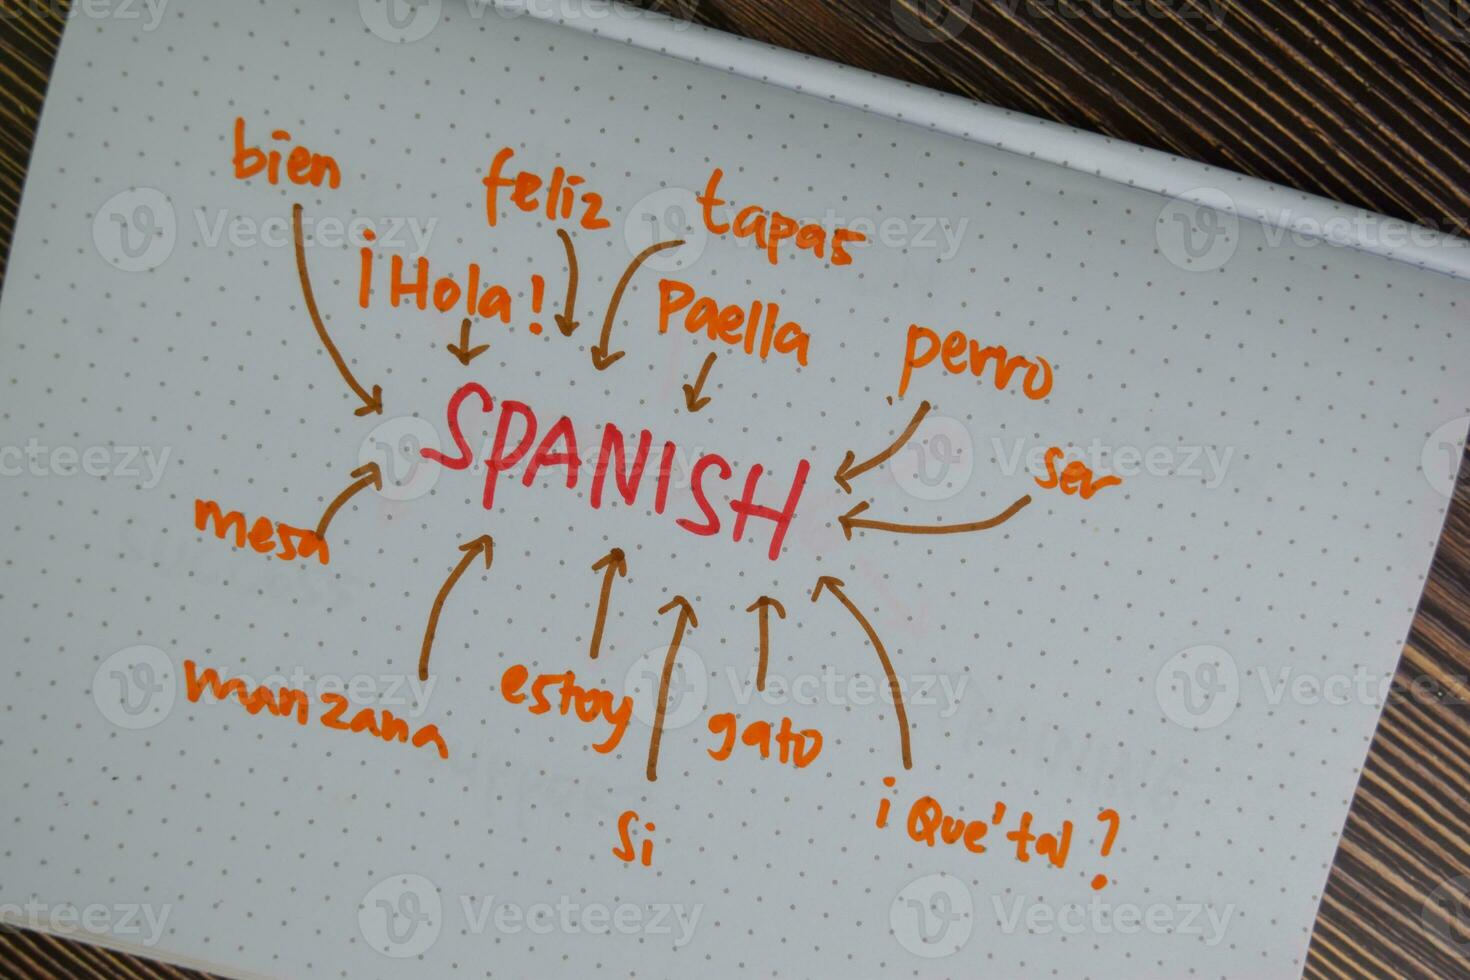 bien
feliz
tapas
¡Hola!
Paella
perro
SPANISH
ser
mesa
manzana
estoy
gato
Si
¡Que'tal?
Vecteezy